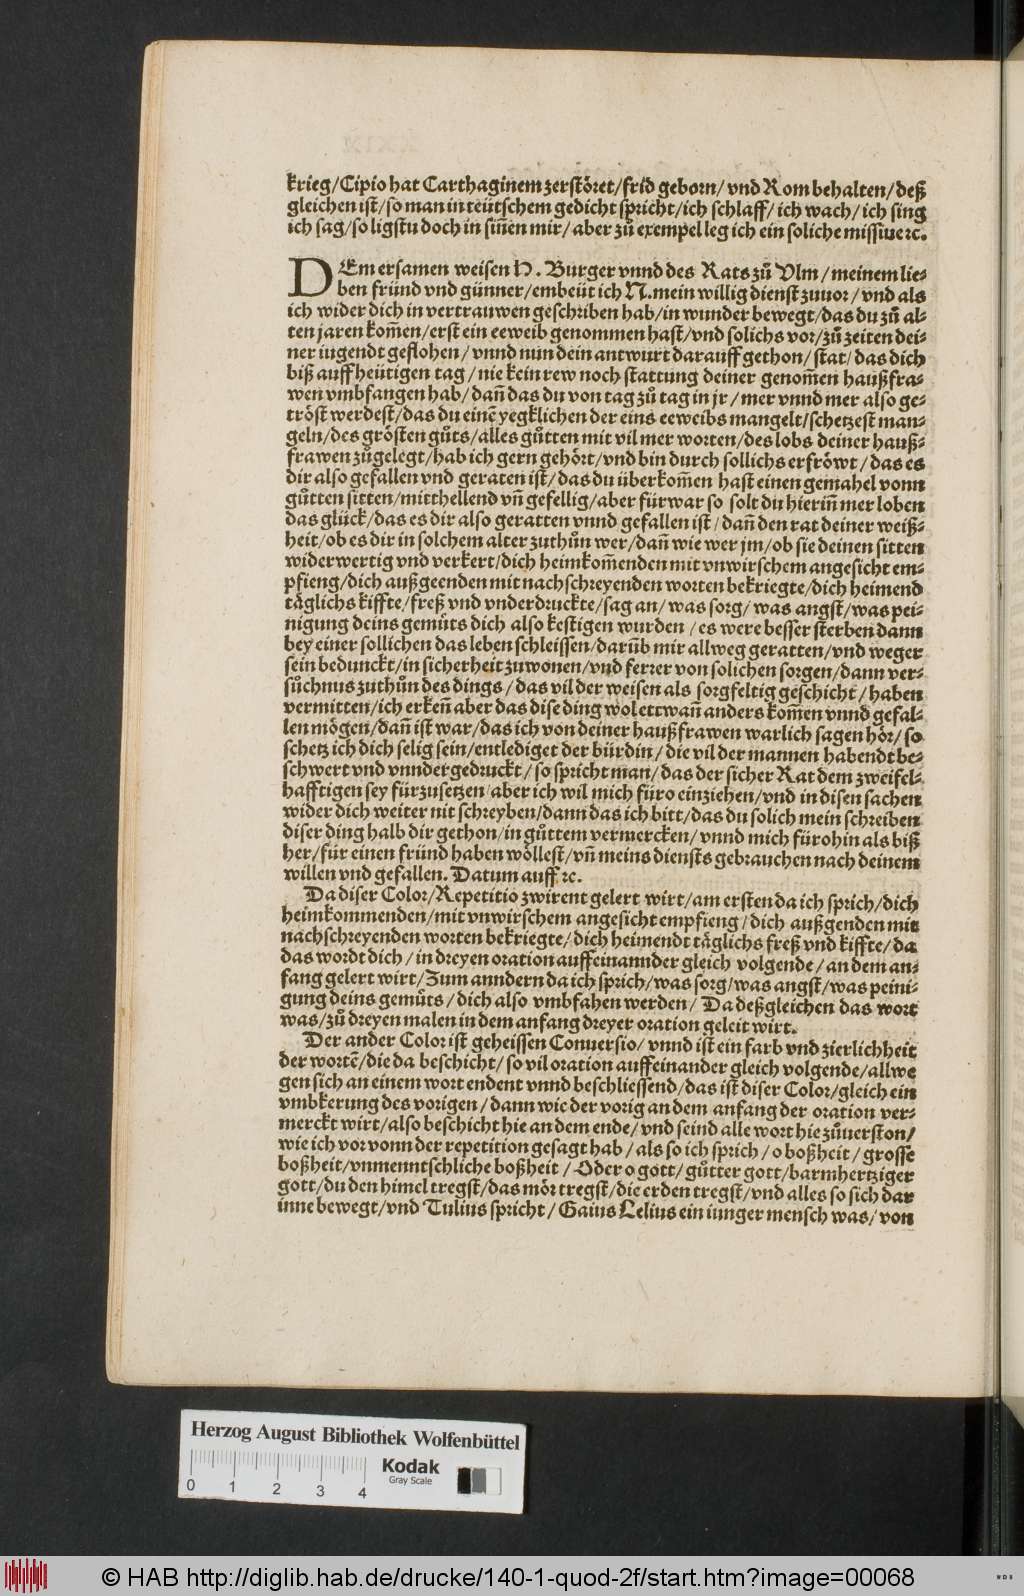 krieg/Cipio hat Carthaginem zerstöret/frid geborn/ vnd Rom behalten/deß
gleichen ist/so man in teütschem gedicht spricht/ich schlaff/ ich wach/ ich sing
ich sag/so ligstu doch in siñen mir/ aber zů exempel leg ich ein soliche missiue ꝛc.
DEm ersamen weisen H. Burger vnnd des Rats zů Vlm/ meinem lie⸗
ben fründ vnd günner/embeüt ich N. mein willig dienst zuuor/ vnd als
ich wider dich in vertrauwen geschriben hab/in wunder bewegt/das du zů al⸗
ten jaren kom̃en/erst ein eeweib genommen hast/vnd solichs vor/zů zeiten dei⸗
ner iugendt geflohen/ vnnd nun dein antwurt darauff gethon/ stat/ das dich
biß auff heütigen tag/ nie kein rew noch stattung deiner genom̃en haußfra⸗
wen vmbfangen hab/ dañ das du von tag zů tag in jr/ mer vnnd mer also ge⸗
tröst werdest/das du einẽ yegklichen der eins eeweibs mangelt/schetzest man⸗
geln/des grösten gůts/alles gůtten mit vil mer worten/des lobs deiner hauß⸗
frawen zůgelegt/hab ich gern gehört/vnd bin durch sollichs erfröwt/ das es
dir also gefallen vnd geraten ist/das du überkom̃en hast einen gemahel vonn
gůtten sitten/mitthellend vñ gefellig/aber fürwar so solt du hieriñ mer loben
das glück/das es dir also geratten vnnd gefallen ist/ dañ den rat deiner weiß⸗
heit/ob es dir in solchem alter zuthůn wer/dañ wie wer jm/ob sie deinen sitten
widerwertig vnd verkert/dich heimkom̃enden mit vnwirschem angesicht em⸗
pfieng/dich außgeenden mit nachschreyenden worten bekriegte/dich heimend
täglichs kiffte/freß vnd vnderdruckte/sag an/ was sorg/ was angst/was pei⸗
nigung deins gemůts dich also kestigen wurden/ es were besser sterben dann
bey einer sollichen das leben schleissen/darũb mir allweg geratten/vnd weger
sein bedunckt/in sicherheit zuwonen/vnd ferrer von solichen sorgen/dann ver⸗
sůchnus zuthůn des dings/ das vil der weisen als sorgfeltig geschicht/ haben
vermitten/ich erkeñ aber das dise ding wol ettwañ anders kom̃en vnnd gefal⸗
len mögen/dañ ist war/das ich von deiner haußfrawen warlich sagen hör/ so
schetz ich dich selig sein/entlediget der bürdin/ die vil der mannen habendt be⸗
schwert vnd vnndergedruckt/ so spricht man/ das der sicher Rat dem zweifel⸗
hafftigen sey fürzusetzen/aber ich wil mich füro einziehen/vnd in disen sachen
wider dich weiter nit schreyben/dann das ich bitt/das du solich mein schreiben
diser ding halb dir gethon/in gůttem vermercken/ vnnd mich fürohin als biß
her/für einen fründ haben wöllest/vñ meins diensts gebrauchen nach deinem
willen vnd gefallen. Datum auff ꝛc.
Da diser Color/Repetitio zwirent gelert wirt/am ersten da ich sprich/dich
heimkommenden/mit vnwirschem angesicht empfieng/ dich außgenden mit
nachschreyenden worten bekriegte/dich heimendt täglichs freß vnd kiffte/da
das wordt dich/ in dreyen oration auffeinannder gleich volgende/ an dem an⸗
fang gelert wirt/Zum anndern da ich sprich/was sorg/was angst/was peini⸗
gung deins gemůts/ dich also vmbfahen werden/ Da deßgleichen das wort
was/zů dreyen malen in dem anfang dreyer oration geleit wirt.
Der ander Color ist geheissen Conuersio/ vnnd ist ein farb vnd zierlichheit
der wortẽ/die da beschicht/ so vil oration auffeinander gleich volgende/allwe
gen sich an einem wort endent vnnd beschliessend/das ist diser Color/gleich ein
vmbkerung des vorigen/ dann wie der vorig an dem anfang der oration ver⸗
merckt wirt/also beschicht hie an dem ende/ vnd seind alle wort hie zůuerston/
wie ich vor vonn der repetition gesagt hab/ als so ich sprich/ o boßheit/ grosse
boßheit/vnmenntschliche boßheit/ Oder o gott/ gůtter gott/barmhertziger
gott/du den himel tregst/das mör tregst/die erden tregst/vnd alles so sich dar
inne bewegt/vnd Tulius spricht/ Gaius Lelius ein iunger mensch was/ von
Herzog August Bibliothek Wolfenbüttel
Kodak
Gray Scale
0 1 2 3 4
© HAB http://diglib.hab.de/drucke/140-1-quod-2f/start.htm?image=00068